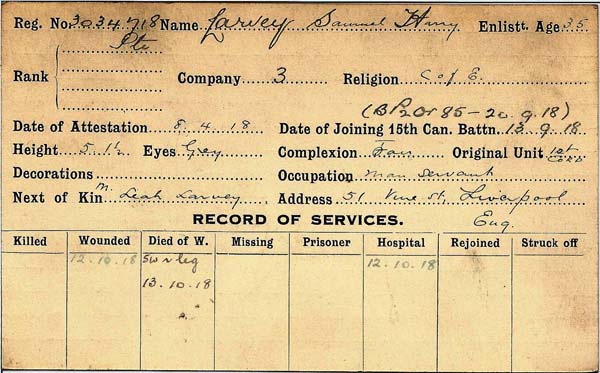 Reg. No. 3034718 Name Larvey Samuel Harry Enlistt. Age 35
Pte
Rank Company 3 Religion C of E.
(B P2 Or 85 - 20.9.18)
Date of Attestation 8.4.18 Date of Joining 15th Can. Battn. 13.9.18
Height 5.1½ Eyes Grey Complexion Fair Original Unit 1st
Decorations Occupation Man Servant
Next of Kin M. Leah Larvey Address 51 Vine St, Liverpool
Eng.
RECORD OF SERVICES.
Killed Wounded Died of W. Missing Prisoner Hospital Rejoined Struck off
12.10.18 SW r leg 12.10.18
13.10.18